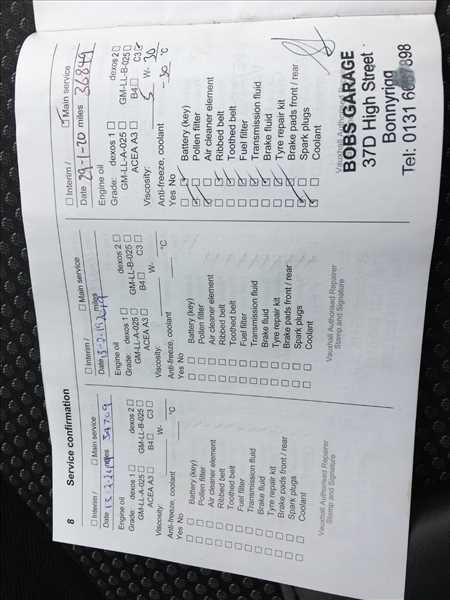 8 Service confirmation
☐ Interim / ☐ Main service
Date miles 34709
Engine oil
Grade: dexos 1 ☐ dexos 2 ☐
GM-LL-A-025 ☐ GM-LL-B-025 ☐
ACEA A3 ☐ B4 ☐ C3 ☐
Viscosity: W-
Anti-freeze, coolant °C
Yes No
☐ ☐ Battery (key)
☐ ☐ Pollen filter
☐ ☐ Air cleaner element
☐ ☐ Ribbed belt
☐ ☐ Toothed belt
☐ ☐ Fuel filter
☐ ☐ Transmission fluid
☐ ☐ Brake fluid
☐ ☐ Tyre repair kit
☐ ☐ Brake pads front / rear
☐ ☐ Spark plugs
☐ ☐ Coolant
Vauxhall Authorised Repairer
Stamp and Signature
☐ Interim / ☐ Main service
Date miles
Engine oil
Grade: dexos 1 ☐ dexos 2 ☐
GM-LL-A-025 ☐ GM-LL-B-025 ☐
ACEA A3 ☐ B4 ☐ C3 ☐
Viscosity: W-
Anti-freeze, coolant °C
Yes No
☐ ☐ Battery (key)
☐ ☐ Pollen filter
☐ ☐ Air cleaner element
☐ ☐ Ribbed belt
☐ ☐ Toothed belt
☐ ☐ Fuel filter
☐ ☐ Transmission fluid
☐ ☐ Brake fluid
☐ ☐ Tyre repair kit
☐ ☐ Brake pads front / rear
☐ ☐ Spark plugs
☐ ☐ Coolant
Vauxhall Authorised Repairer
Stamp and Signature
☐ Interim / ☑ Main service
Date 29-1-20 miles 36849
Engine oil
Grade: dexos 1 ☐ dexos 2 ☐
GM-LL-A-025 ☐ GM-LL-B-025 ☐
ACEA A3 ☐ B4 ☐ C3 ☑
Viscosity: 5 W- 30
Anti-freeze, coolant -30 °C
Yes No
Battery (key)
Pollen filter
Air cleaner element
Ribbed belt
Toothed belt
Fuel filter
Transmission fluid
Brake fluid
Tyre repair kit
Brake pads front / rear
Spark plugs
Coolant
Vauxhall Authorised
BOBS GARAGE
37D High Street
Bonnyrigg
Tel: 0131 898